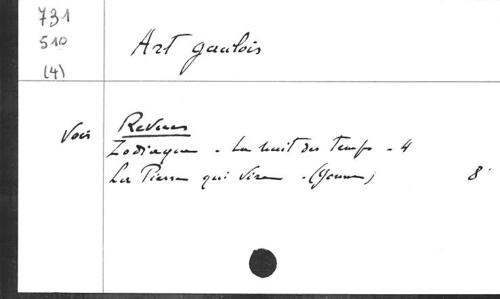 731
510
(4)
Art gaulois
Voir Revues
Zodiaque - La nuit des Temps - 4
La Pierre qui Vire - (Yonne) 8°